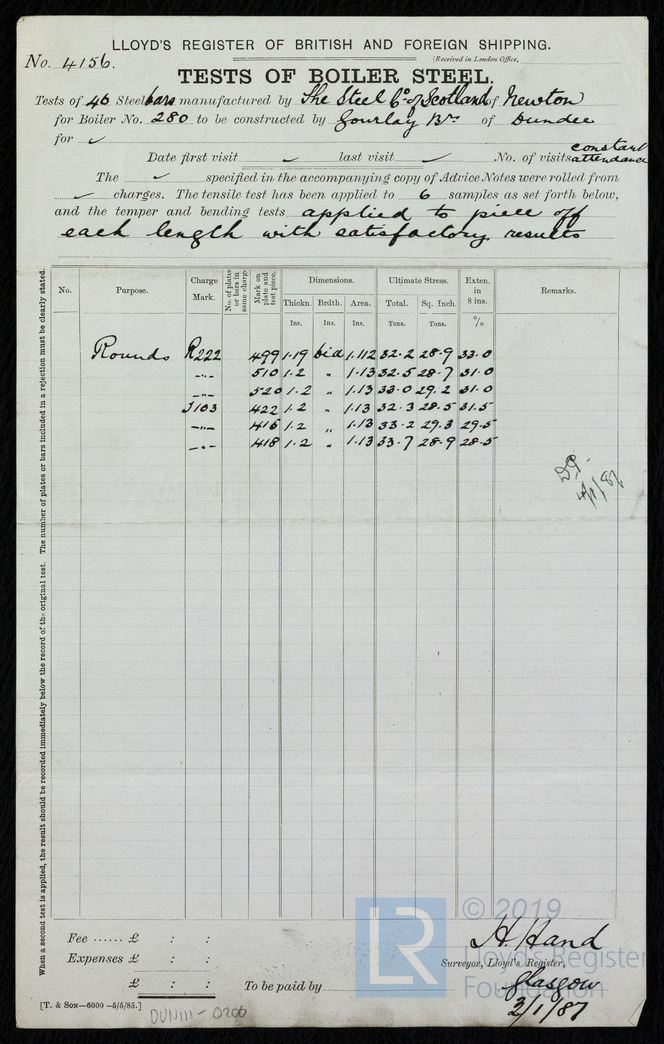 LLOYD'S REGISTER OF BRITISH AND FOREIGN SHIPPING.
No. 4156.
(Received in London Office,
TESTS OF BOILER STEEL.
Tests of 46 Steel bars manufactured by The Steel Co of Scotland of Newton
for Boiler No. 280 to be constructed by Gourlay Brs of Dundee
for ✓
Date first visit ✓ last visit ✓ No. of visits constant attendance
The ✓ specified in the accompanying copy of Advice Notes were rolled from
✓ charges. The tensile test has been applied to 6 samples as set forth below,
and the temper and bending tests applied to piece off
each length with satisfactory results
When a second test is applied, the result should be recorded immediately below the record of the original test. The number of plates or bars included in a rejection must be clearly stated.
No. Purpose. Charge Mark. No. of plates or bars in same charge Mark on plate and test piece. Dimensions. Ultimate Stress. Exten. in 8 ins. Remarks.
Thickn. Brdth. Area. Total. Sq. Inch.
Ins. Ins. Ins. Tons. Tons. %
Rounds R222 499 1.19 dia 1.112 32.2 28.9 33.0
—"— 510 1.2 " 1.13 32.5 28.7 31.0
—"— 520 1.2 " 1.13 33.0 29.2 31.0
J103 422 1.2 " 1.13 32.3 28.5 31.5
—"— 416 1.2 " 1.13 33.2 29.3 29.5
—"— 418 1.2 " 1.13 33.7 28.9 28.5
4/1/87
Fee ...... £ : :
Expenses £ : :
£ : :
To be paid by
H. Hand
Surveyor, Lloyd's Register,
Glasgow
3/1/87
[T. & Son—6000—5/5/85.]
DUN111-0200
LR
© 2019
Lloyd's Register
Foundation